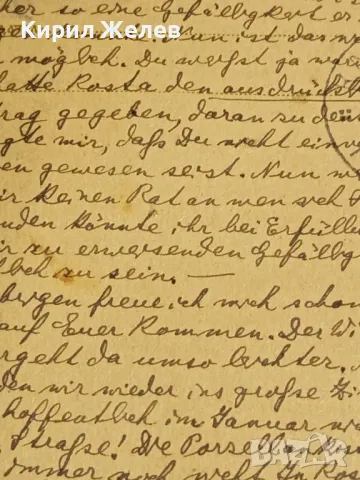 Кирил Желев
her so eine Gefälligkeit er
Nun ist das
mögbch. Du weisst ja
hatte Rosta den ausdrückl
rag gegeben, daran zu den
gte mir, dass Du nicht einver
en gewesen seist. Nun
ir keinen Rat an men sich
nden könnte ihr bei Erfüllu
ir zu erweisenden Gefällig
lbch zu sein. —
brigen freue ich mich schon
auf Euer Kommen. Der Wi
ergeht da umso leichter.
den wir wieder ins große Zi
hoffentlich im Januar
Straße! Die Porzellan
immer noch nicht. In Ros
bazar